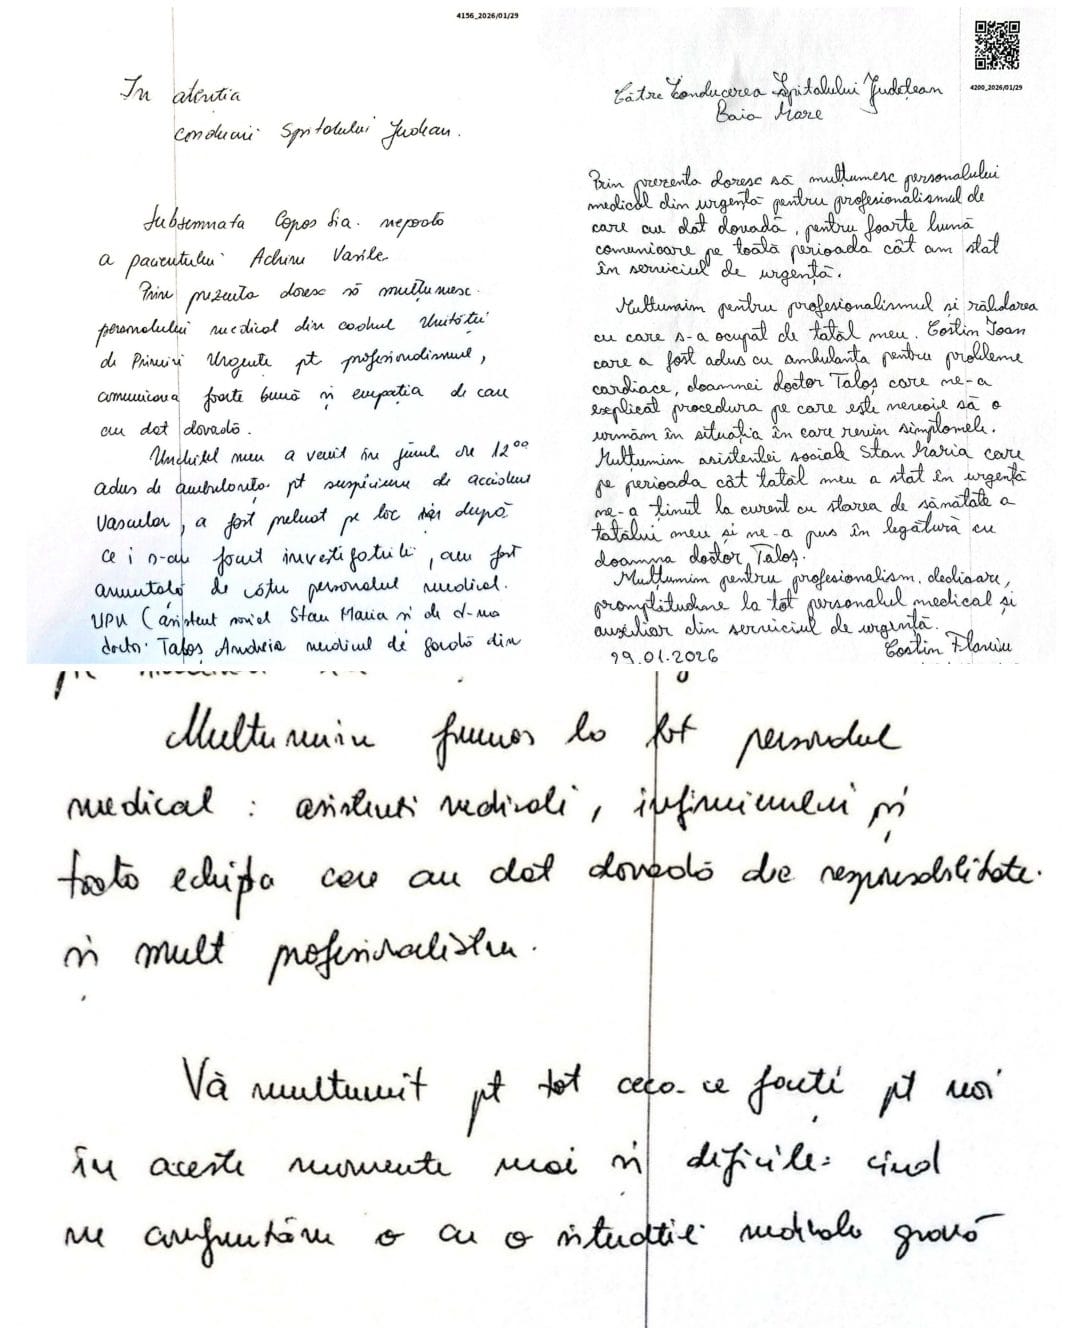 4156_2026/01/29
In atentia
conducerii Spitalului Judean.
Subsemnata Copos Lia. nepoata
a pacientului Achim Vasile
Prin prezenta doresc să multumesc
personalului medical din cadrul Unitătii
de Primiri Urgente pt profesionalismul,
comunicarea foarte bună și empatia de care
au dat dovadă.
Unchiul meu a venit în jurul orei 12⁰⁰
adus de ambulanța pt suspiciune de accident
Vascular, a fost preluat pe loc iar după
ce i s-au facut investigatiile, am fost
anuntată de către personalul medical
UPU (asistent social Stan Maria și de d-na
doctor Taloș Andreia medicul de gardă din
4200_2026/01/29
Către Conducerea Spitalului Județean
Baia Mare
Prin prezenta doresc să mulțumesc personalului
medical din urgență pentru profesionalismul de
care au dat dovadă, pentru foarte bună
comunicare pe toată perioada cât am stat
în serviciul de urgență.
Multumim pentru profesionalismul și răbdarea
cu care s-a ocupat de tatăl meu. Costin Ioan
care a fost adus cu ambulanța pentru probleme
cardiace, doamnei doctor Taloș care ne-a
explicat procedura pe care este nevoie să o
urmăm în situația în care revin simptomele.
Multumim asistentei sociale Stan Maria care
pe perioada cât tatăl meu a stat în urgență
ne-a ținut la curent cu starea de sănătate a
tatălui meu și ne-a pus în legătură cu
doamna doctor Taloș.
Multumim pentru profesionalism, dedicare,
promptitudine la tot personalul medical și
auxiliar din serviciul de urgență.
29.01.2026 Costin Flaviu
Multumim frumos la tot personalul
medical : asistenti medicali, infirmierului și
toata echipa care au dat dovadă de responsabilitate.
și mult profesionalism.
Vă multumit pt tot ceea-ce faceti pt noi
în aceste momente mai și dificile: cind
ne confruntăm o cu o situatie medicala gravă